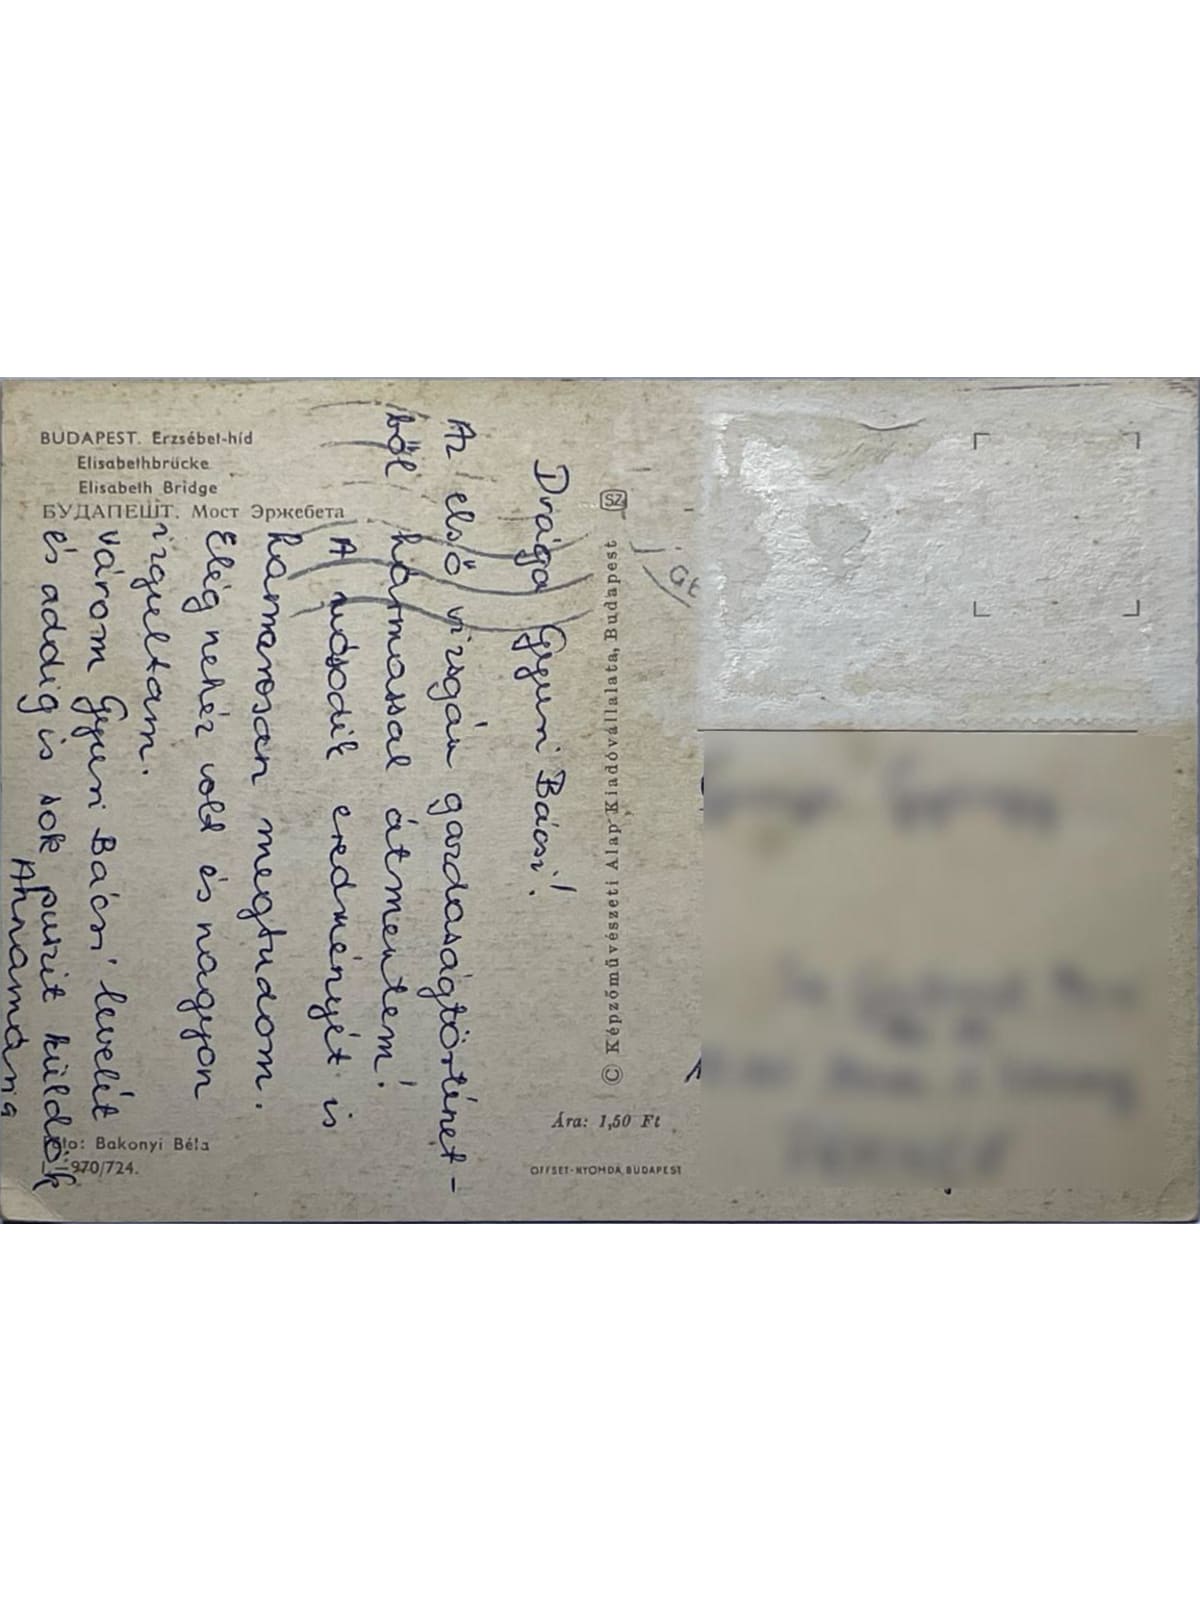 BUDAPEST. Erzsébet-híd
Elisabethbrücke
Elisabeth Bridge
БУДАПЕШТ. Мост Эржебета
Drága Gyuri Bácsi!
Az első vizsgán gazdaságtörténet-
ből hármassal átmentem!
A második eredményét is
hamarosan megtudom.
Elég nehéz volt és nagyon
izgultam.
Várom Gyuri Bácsi levelét
és addig is sok puszit küldök
Annamária
SZ
© Képzőművészeti Alap Kiadóvállalata, Budapest
Ára: 1,50 Ft
OFFSET-NYOMDA, BUDAPEST
Bakonyi Béla
970/724.